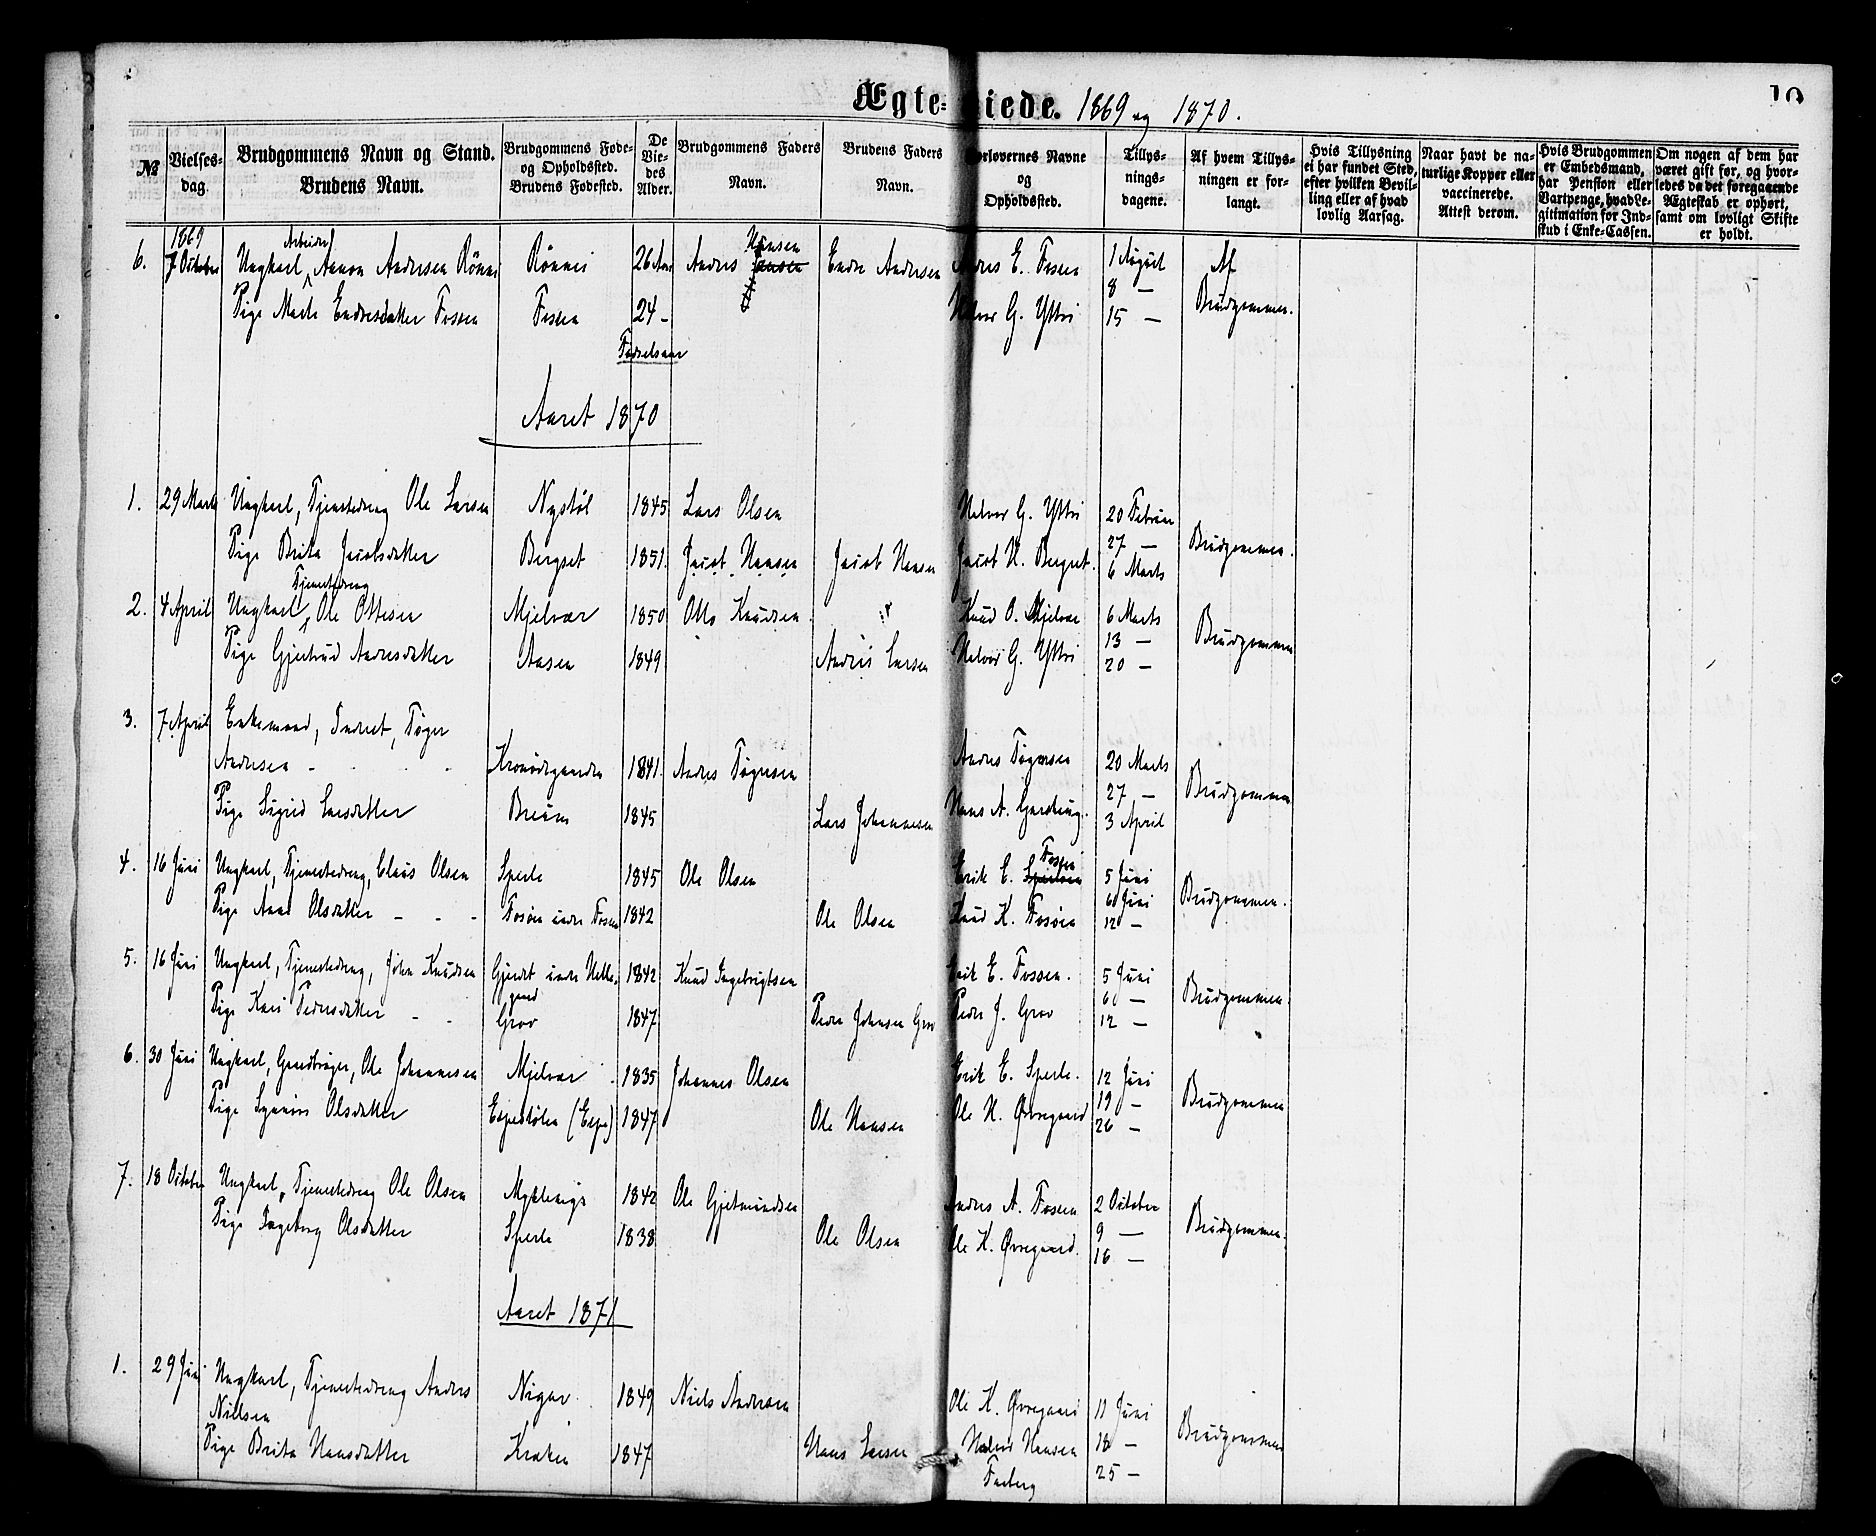 Ægte-viede. 1869 og 1870.
10
№
Vielses-dag.
Brudgommens Navn og Stand. Brudens Navn.
Brudgommens Føde- og Opholdssted. Brudens Fødested.
De Vie-des Alder.
Brudgommens Faders Navn.
Brudens Faders Navn.
Forlovernes Navne og Opholdssted.
Tillys-nings-dagene.
Af hvem Tillys-ningen er for-langt.
Hvis Tillysning ei har fundet Sted, efter hvilken Bevil-ling eller af hvad lovlig Aarsag.
Naar havt de na-turlige Kopper eller vaccinerede. Attest derom.
Hvis Brudgommen er Embedsmand, har Pension eller Vartpenge, hvad Le-gitimation for Ind-skud i Enke-Cassen.
Om nogen af dem har været gift før, og hvor-ledes da det foregaaende Ægteskab er ophørt, samt om lovligt Skifte er holdt.
1869
6. 7 October Ungkarl, Arbeider Aamon Andersen Rönnei Rönnei 26 Aar Anders Hansen Endre Andersen Anders E. Fossen 1 August Af
8 —
Pige Marta Endresdatter Fossen Fossen 24 - Halvor G. Yttri 15 — Brudgommen.
Fødselsaar
Aaret 1870
1. 29 Marts Ungkarl, Tjenestedreng Ole Larsen Nystöl 1845 Lars Olsen Halvor G. Yttri 20 Februar
27 — Brudgommen.
Pige Brita Jacobsdatter Bergset 1851. Jacob Hansen Jacob Hansen Jacob H. Bergset. 6 Marts
Tjenestedreng
2. 4 April Ungkarl, Ole Ottesen Mjelvær 1850 Otto Knudsen Knud O. Mjelvær 6 Marts
13 — Brudgommen
Pige Gjertrud Andersdatter Aasen 1849 Anders Larsen Halvor G. Yttri 20 —
3. 7 April Enkemand, Inderst, Töger
Andersen - Kronörgaarden 1841. Anders Tögersen Anders Tögersen 20 Marts
27 — Brudgommen
Pige Sigrid Larsdatter Breum 1845 Lars Johannesen Hans A. 3 April
4. 16 Juni Ungkarl, Tjenestedreng, Claus Olsen Sperle 1845 Ole Olsen Erik E. Fossen 5 Juni
6 Juni Brudgommen.
Pige Anne Olsdatter - - - Fosöen under Fossen 1842 Ole Olsen Knud K. Fosöen 12 —
5. 16 Juni Ungkarl, Tjenestedreng, John Knudsen Gjerdet under Helle-gaard 1842 Knud Ingebrigtsen Erik E. Fossen. 5 Juni
6 — Brudgommen.
Pige Kari Pedersdatter - - Grov 1847 Peder Johnsen Grov Peder J. Grov 12 —
6. 30 Juni Ungkarl, Gaardbruger, Ole Johannesen Mjelvær 1835 Johannes Olsen Erik E. Sperle. 12 Juni
19 — Brudgommen
Pige Synniva Olsdatter Espestölen (Espe) 1847 Ole Hansen Ole H. Øvregaard 26 —
7. 18 October Ungkarl, Tjenestedreng Ole Olsen 1842 Ole Gjetmundsen Anders A. Fossen 2 October
9 — Brudgommen.
Pige Ingeborg Olsdatter Sperle 1838 Ole Olsen Ole K. Øvregaard. 16 —
Aaret 1871
1. 29 Juni Ungkarl, Tjenestedreng Anders Nigar 1849 Niels Andersen Ole K. Øvregaard 11 Juni
Nielsen 18 — Brudgommen
Pige Brita Hansdatter Kraken 1847 Hans Larsen Halvor Hansen 25 —
Faaberg